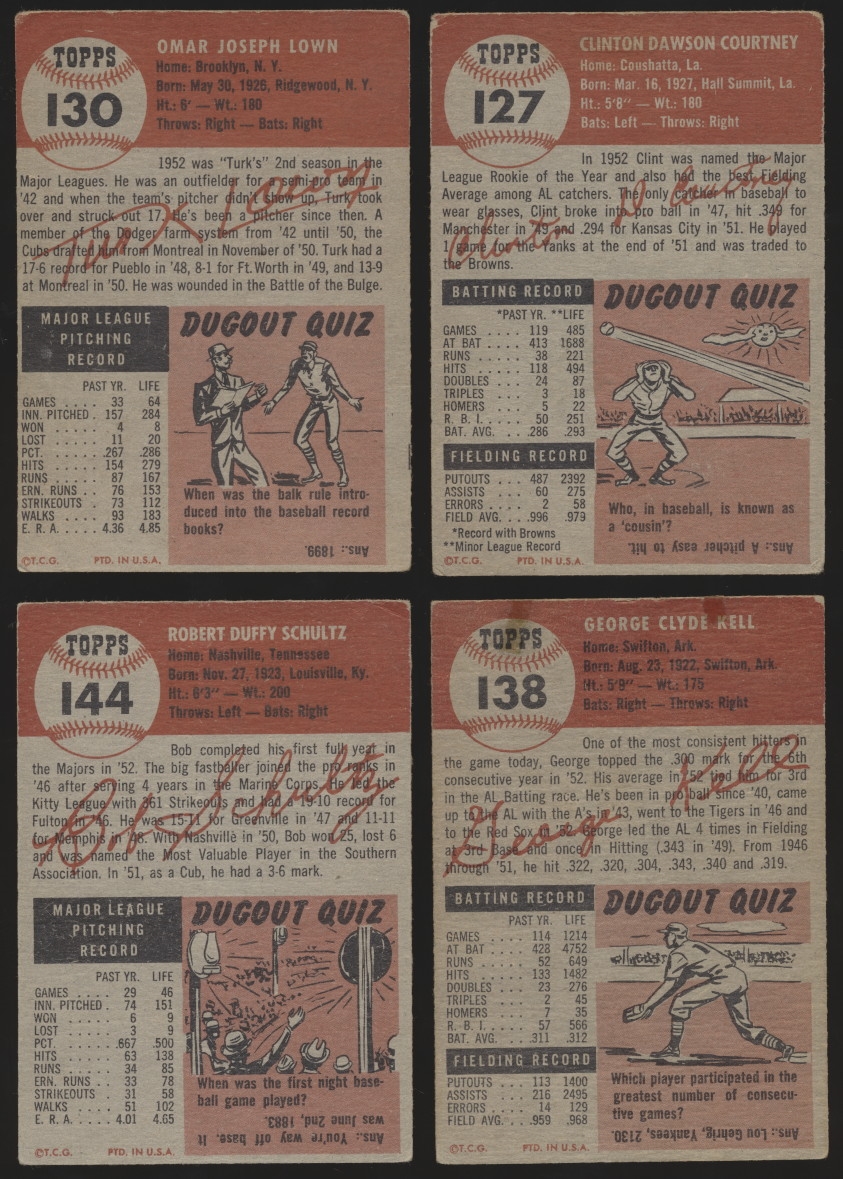 TOPPS
130
OMAR JOSEPH LOWN
Home: Brooklyn, N. Y.
Born: May 30, 1926, Ridgewood, N. Y.
Ht.: 6' — Wt.: 180
Throws: Right — Bats: Right
1952 was "Turk's" 2nd season in the
Major Leagues. He was an outfielder for a semi-pro team in
'42 and when the team's pitcher didn't show up, Turk took
over and struck out 17. He's been a pitcher since then. A
member of the Dodger farm system from '42 until '50, the
Cubs drafted him from Montreal in November of '50. Turk had a
17-6 record for Pueblo in '48, 8-1 for Ft. Worth in '49, and 13-9
at Montreal in '50. He was wounded in the Battle of the Bulge.
Turk Lown
MAJOR LEAGUE
PITCHING
RECORD
PAST YR. LIFE
GAMES .... 33 64
INN. PITCHED . 157 284
WON .... 4 8
LOST .... 11 20
PCT. .... .267 .286
HITS .... 154 279
RUNS .... 87 167
ERN. RUNS .. 76 153
STRIKEOUTS . 73 112
WALKS .... 93 183
E. R. A. .... 4.36 4.85
©T.C.G. PTD. IN U.S.A.
DUGOUT QUIZ
When was the balk rule intro-
duced into the baseball record
books?
Ans.: 1899.
TOPPS
127
CLINTON DAWSON COURTNEY
Home: Coushatta, La.
Born: Mar. 16, 1927, Hall Summit, La.
Ht.: 5'8" — Wt.: 180
Bats: Left — Throws: Right
In 1952 Clint was named the Major
League Rookie of the Year and also had the best Fielding
Average among AL catchers. The only catcher in baseball to
wear glasses, Clint broke into pro ball in '47, hit .349 for
Manchester in '49 and .294 for Kansas City in '51. He played
1 game for the Yanks at the end of '51 and was traded to
the Browns.
Clinton D Courtney
BATTING RECORD
*PAST YR. **LIFE
GAMES .... 119 485
AT BAT .... 413 1688
RUNS .... 38 221
HITS .... 118 494
DOUBLES ... 24 87
TRIPLES .... 3 18
HOMERS ... 5 22
R. B. I. .... 50 251
BAT. AVG. ... .286 .293
FIELDING RECORD
PUTOUTS ... 487 2392
ASSISTS .... 60 275
ERRORS .... 2 58
FIELD AVG. ... .996 .979
*Record with Browns
**Minor League Record
©T.C.G. PTD. IN U.S.A.
DUGOUT QUIZ
Who, in baseball, is known as
a 'cousin'?
Ans.: A pitcher easy to hit.
TOPPS
144
ROBERT DUFFY SCHULTZ
Home: Nashville, Tennessee
Born: Nov. 27, 1923, Louisville, Ky.
Ht.: 6'3" — Wt.: 200
Throws: Left — Bats: Right
Bob completed his first full year in
the Majors in '52. The big fastballer joined the pro ranks in
'46 after serving 4 years in the Marine Corps. He led the
Kitty League with 361 Strikeouts and had a 19-10 record for
Fulton in '46. He was 15-11 for Greenville in '47 and 11-11
for Memphis in '48. With Nashville in '50, Bob won 25, lost 6
and was named the Most Valuable Player in the Southern
Association. In '51, as a Cub, he had a 3-6 mark.
Bob Schultz
MAJOR LEAGUE
PITCHING
RECORD
PAST YR. LIFE
GAMES .... 29 46
INN. PITCHED . 74 151
WON .... 6 9
LOST .... 3 9
PCT. .... .667 .500
HITS .... 63 138
RUNS .... 34 85
ERN. RUNS .. 33 78
STRIKEOUTS . 31 58
WALKS .... 51 102
E. R. A. .... 4.01 4.65
©T.C.G. PTD. IN U.S.A.
DUGOUT QUIZ
When was the first night base-
ball game played?
Ans.: You're way off base. It
was June 2nd, 1883.
TOPPS
138
GEORGE CLYDE KELL
Home: Swifton, Ark.
Born: Aug. 23, 1922, Swifton, Ark.
Ht.: 5'9" — Wt.: 175
Bats: Right — Throws: Right
One of the most consistent hitters in
the game today, George topped the .300 mark for the 6th
consecutive year in '52. His average in '52 tied him for 3rd
in the AL Batting race. He's been in pro ball since '40, came
up to the AL with the A's in '43, went to the Tigers in '46 and
to the Red Sox in '52. George led the AL 4 times in Fielding
at 3rd Base and once in Hitting (.343 in '49). From 1946
through '51, he hit .322, .320, .304, .343, .340 and .319.
George Kell
BATTING RECORD
PAST YR. LIFE
GAMES .... 114 1214
AT BAT .... 428 4752
RUNS .... 52 649
HITS .... 133 1482
DOUBLES ... 23 276
TRIPLES .... 2 45
HOMERS ... 7 35
R. B. I. .... 57 566
BAT. AVG. ... .311 .312
FIELDING RECORD
PUTOUTS ... 113 1400
ASSISTS .... 216 2495
ERRORS .... 14 129
FIELD AVG. ... .959 .968
©T.C.G. PTD. IN U.S.A.
DUGOUT QUIZ
Which player participated in the
greatest number of consecu-
tive games?
Ans.: Lou Gehrig, Yankees, 2130.